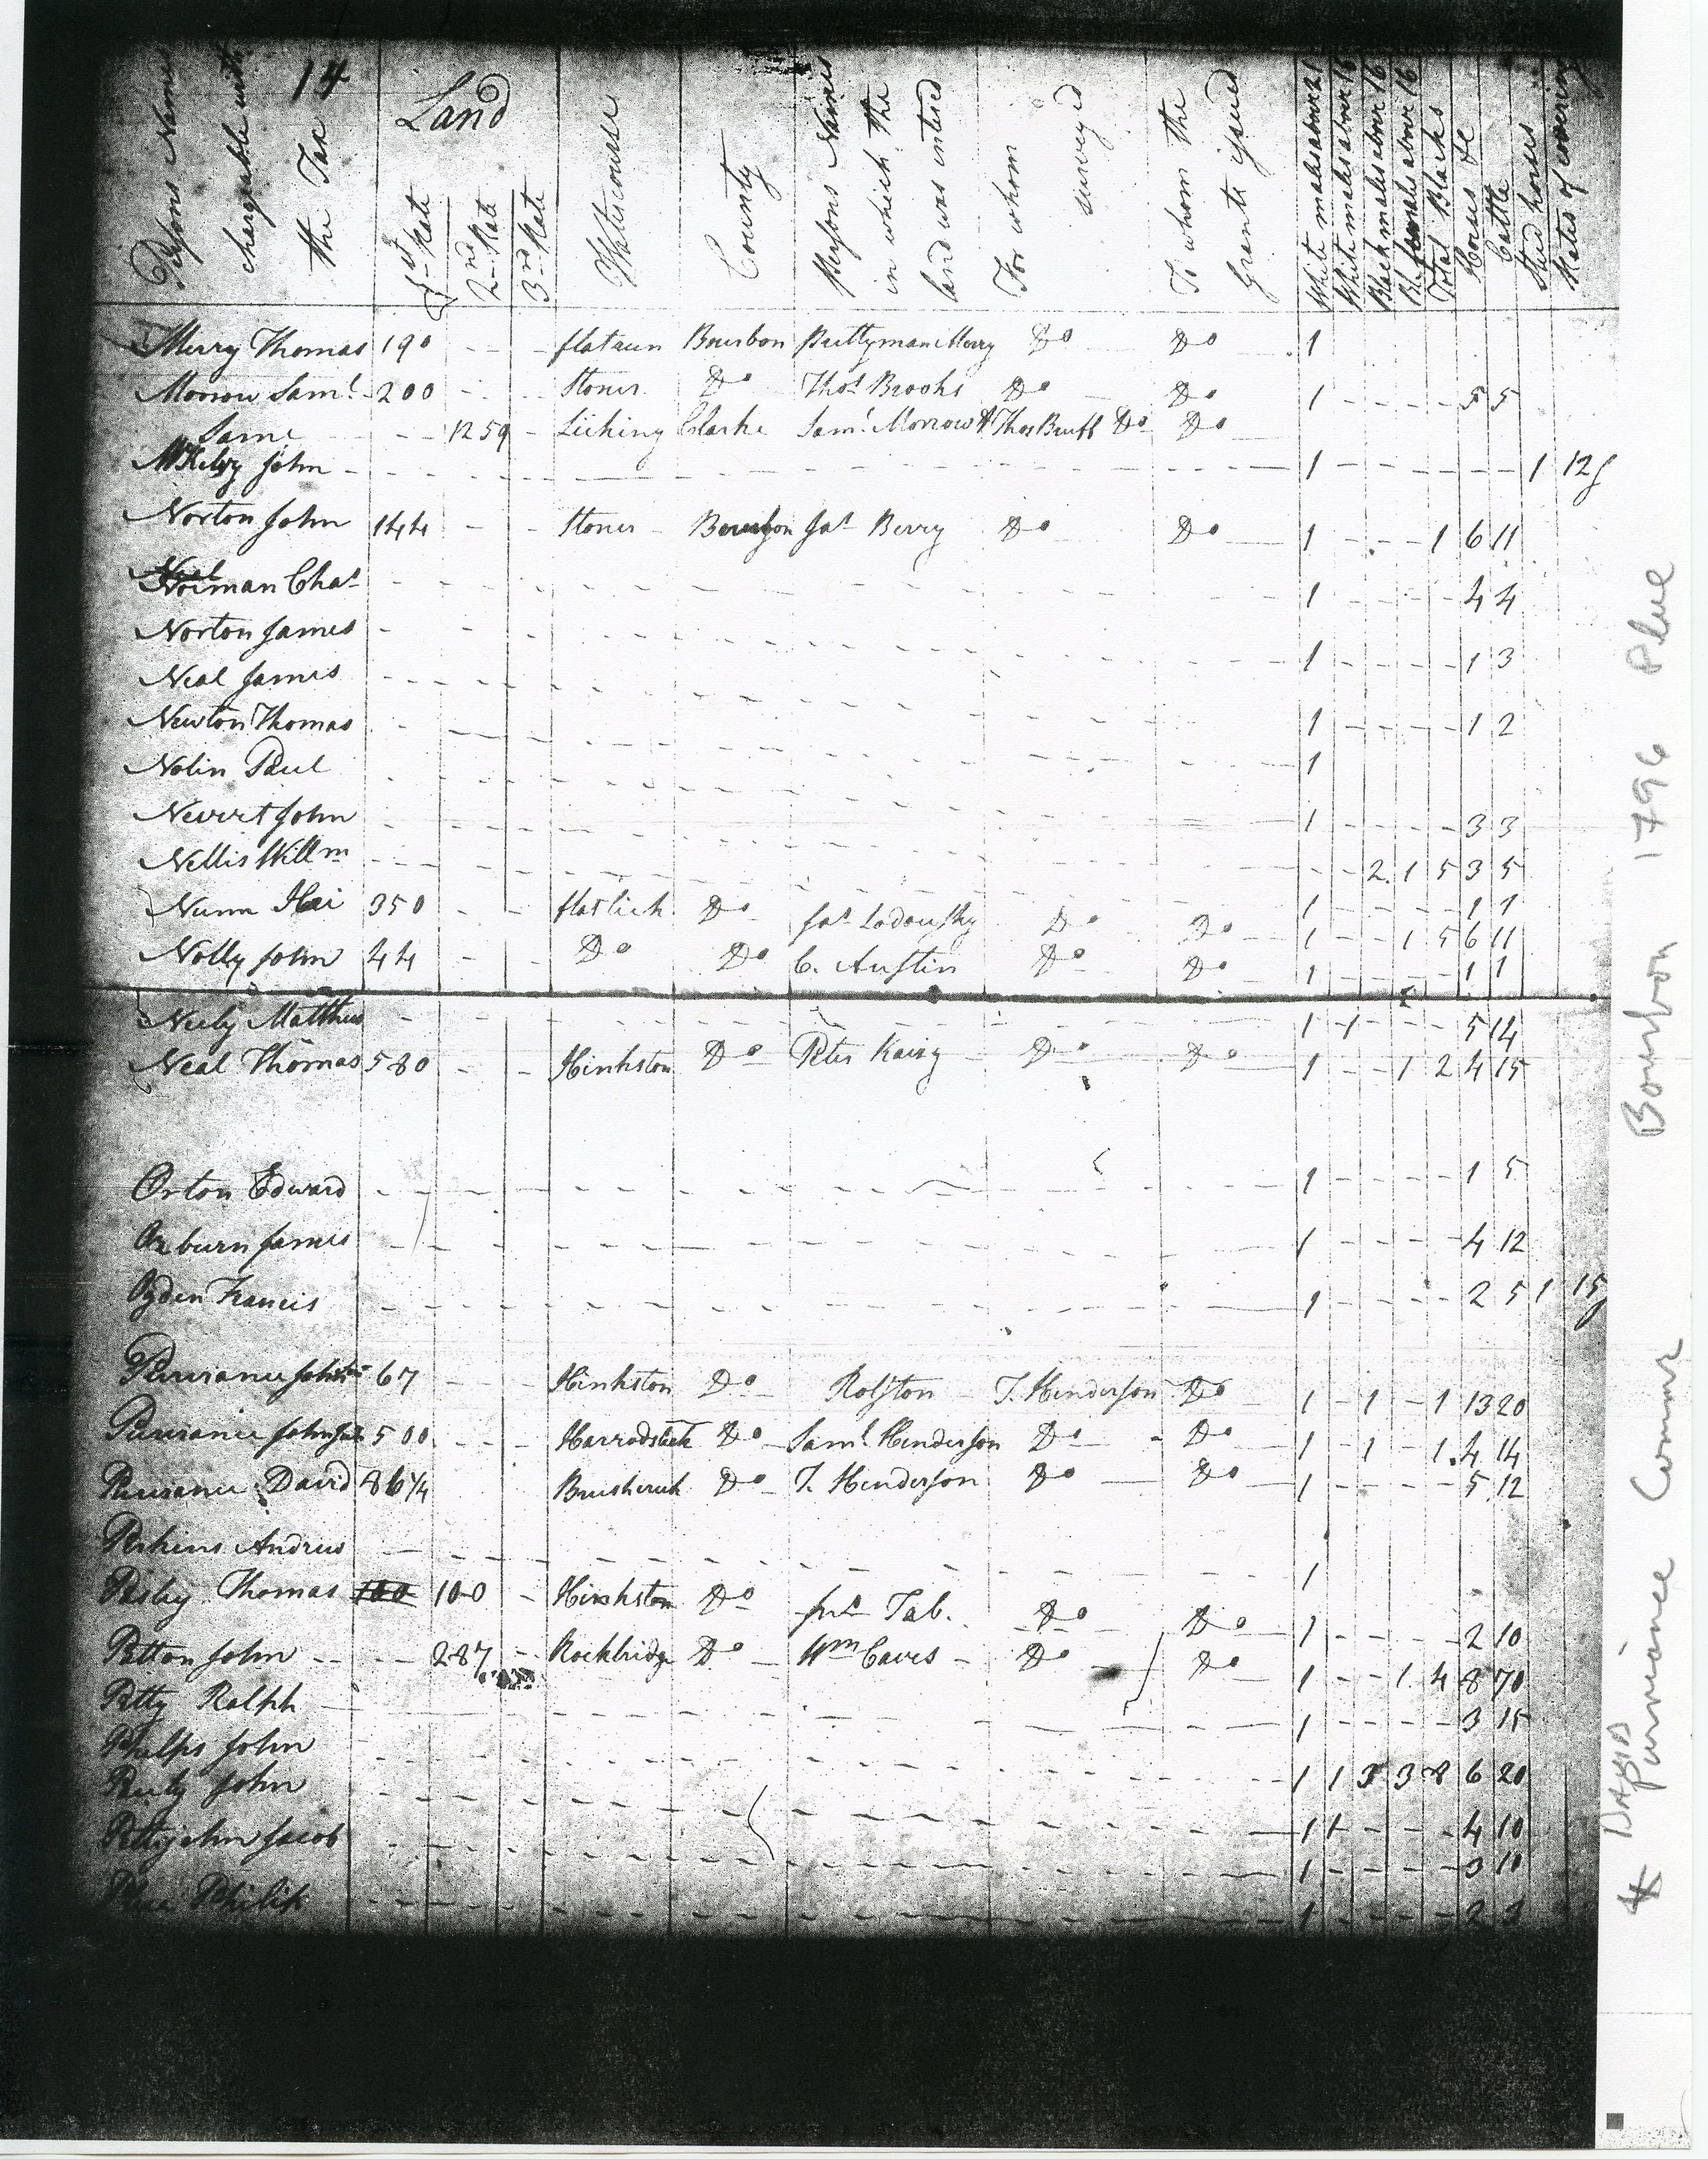 14
Persons Names chargeable with the Tax
Land
1st Rate
2nd Rate
3rd Rate
Watercourse
County
Persons Names in which the land was entered
For whom surveyed
To whom the Grants issued
White males above 21
White males above 16
Black males above 16
Total Blacks
Horses &c
Cattle
Stud horses
Rates of covering
Merry Thomas 190 - - flatrun Bourbon Prettyman Merry Do Do 1
Morrow Saml. 200 - - Stoner Do Thos Brooks Do Do 1 - - - - 5 5
Same - - 1259 - Licking Clarke Saml. Morrow & Thos Do Do
McKelvy John - - - 1 - - - - - - 1 12/
Norton John 144 - - Stoner Bourbon Jas Berry Do Do 1 - - - 1 6 11
Neal
Norman Chas - - - 1 - - - - 4 4
Norton James - - - 1 - - - - 1 3
Neal James - - -
Newton Thomas - - - 1 - - - - 1 2
Nolin Paul - - - 1
John - - - 1 - - - - 3 3
Nellis Willm - - - - - 2 1 5 3 5
Nunn 350 - - flatlick Do Jas Do Do 1 - - - - 1 1
1 - - 1 5 6 11
Nolly John 44 - - Do Do C. Austin Do Do 1 - - - - 1 1
Neely Matthew - - - 1 1 - - - 5 14
Neal Thomas 580 - - Hinkston Do Peter Do Do 1 - - 1 2 4 15
Orton Edward - - - 1 - - - - 1 5
Ozburn James - - - 1 - - - - 4 12
Ogden Francis - - - 1 - - - - 2 5 1 15/
Purviance John 67 - - Hinkston Do Rolston T. Henderson Do 1 - 1 - 1 13 20
Purviance John 500 - - Harrodslick Do Saml. Henderson Do Do 1 - 1 - 1 4 14
Purviance David 86 1/4 Do T. Henderson Do Do 1 - - - - 5 12
Perkins Andrew - - - 1
Thomas 100 100 - Hinkston Do Tab. Do Do 1 - - - - 2 10
Patton John - - 287 - Rockbridge Do Wm Caves Do Do 1 - - 1 4 8 70
Petty Ralph - - - 1 - - - - 3 15
Phelps John - - - 1 1 3 3 8 6 20
John - - - 1 1 - - - 4 10
Pettyjohn Jacob - - - 1 - - - - 3 10
Philip - - - 1 - - - - 2 3
Bourbon 1796
* DAVID Purviance Commr